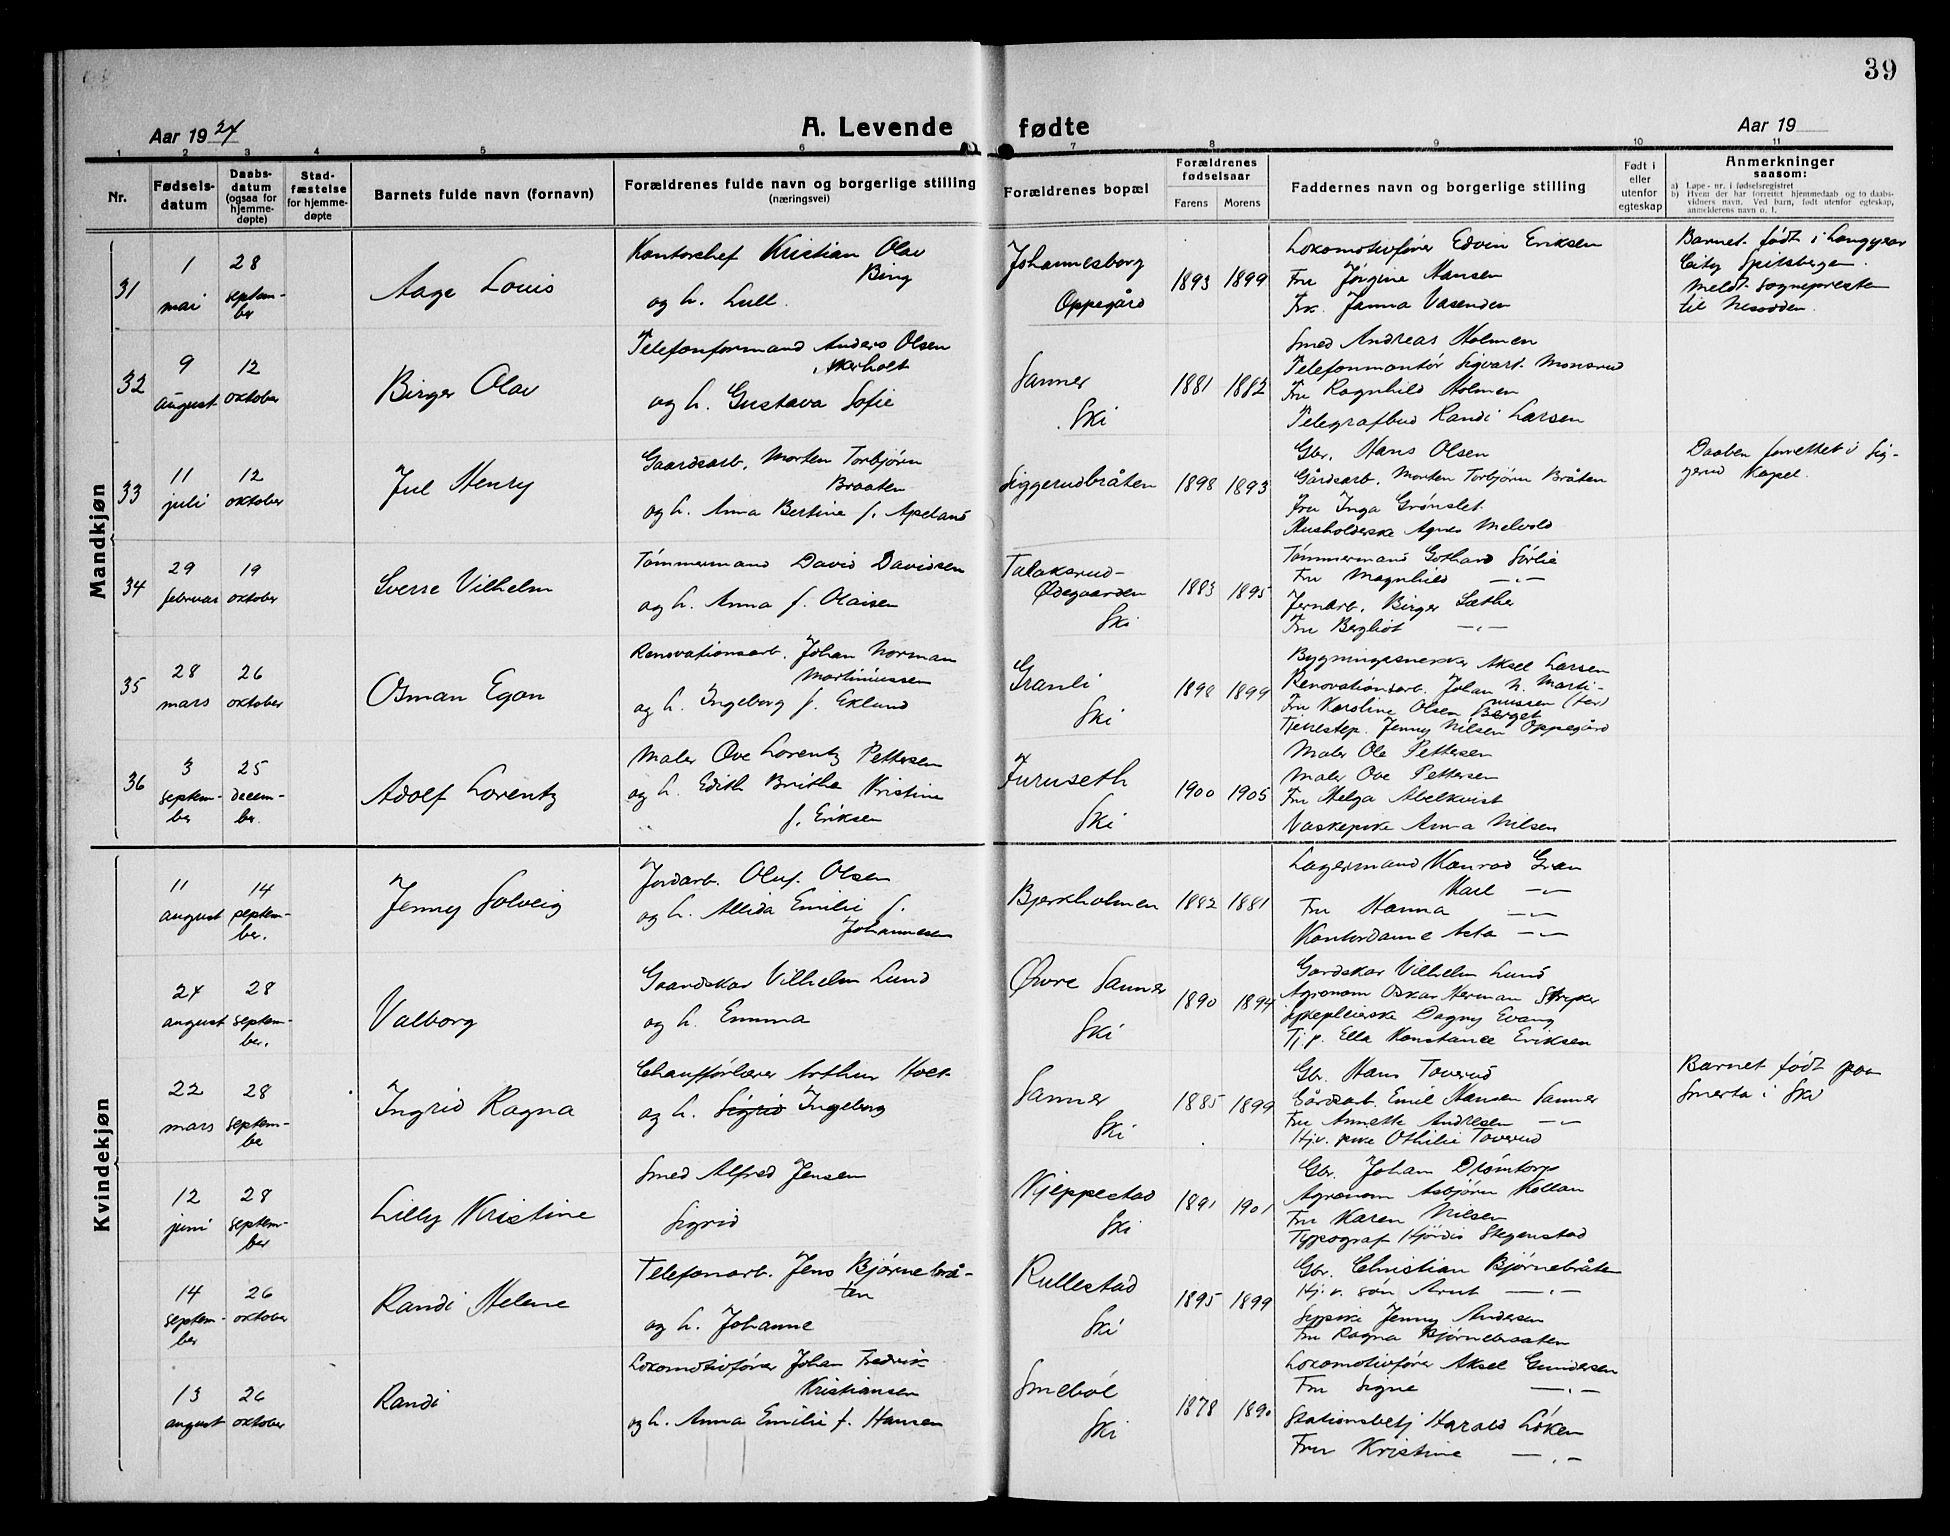 39
Aar 1924
A. Levende fødte
Aar 19
1 2 3 4 5 6 7 8 9 10 11
Nr.
Fødsels-
datum
Daabs-
datum
(ogsaa for
hjemme-
døpte)
Stad-
fæstelse
for hjemme-
døpte
Barnets fulde navn (fornavn)
Forældrenes fulde navn og borgerlige stilling
(næringsvei)
Forældrenes bopæl
Forældrenes
fødselsaar
Farens Morens
Faddernes navn og borgerlige stilling
Født i
eller
utenfor
egteskap
Anmerkninger
saasom:
a) Løpe-nr. i fødselsregistret
b) Hvem der har forrettet hjemmedaab og to daabs-
vidners navn. Ved barn, født utenfor egteskap,
anmelderens navn o. l.
Mandkjøn
31
1
mai
28
septem-
ber
Aage Louis
Kontorchef Kristian Olav
Bing
og h. Lull.
Johannesborg
Oppegård
1893 1899
Lokomotivfører Edvin Eriksen
Fru Jørgine Hansen
Frk. Janna Vasenden
Barnet født i Longyear
City Spitsbergen.
Meldt sognepresten
til Nesodden.
32
9
august
12
oktober
Birger Olav
Telefonformand Anders Olsen
Akerholt
og h. Gustava Sofie
Sanner
Ski
1881 1882
Smed Andreas Holmen
Telefonmontør Sigvart Monsrud
Fru Ragnhild Holmen
Telegrafbud Randi Larsen
33
11
juli
12
oktober
Jul Henry
Gaardsarb. Morten Torbjørn
Braaten
og h. Anna Bertine f. Apeland
Siggerudbråten
1898 1893
Gbr. Hans Olsen
Gårdsarb. Morten Torbjørn Bråten
Fru Inga Grønslet
Husholderske Agnes Melvold
Daaben forrettet i Sig-
gerud Kapel.
34
29
februar
19
oktober
Sverre Vilhelm
Tømmermand David Davidsen
og h. Anna f. Olaisen
Talaksrud-
Ødegaarden
Ski
1883 1895
Tømmermand Gothard Sørlie
Fru Magnhild —"—
Jernarb. Birger Sæther
Fru Bergliot —"—
35
28
mars
26
oktober
Osman Egon
Renovationsarb. Johan Norman
Martiniussen
og h. Ingeborg f. Eklund
Granli
Ski
1898 1899
Bygningssnekker Aksel Larsen
Renovationsarb. Johan N. Marti-
niussen (far)
Fru Karoline Olsen Berget
Tjenestep. Jenny Nilsen Oppegård
36
3
septem-
ber
25
decem-
ber.
Adolf Lorentz
Maler Ove Lorentz Pettersen
og h. Edith Brithe Kristine
f. Eriksen
Furuseth
Ski
1900 1905
Maler Ole Pettersen
Maler Ove Pettersen
Fru Helga Abelkvist
Vaskepike Anna Nilsen
Kvindekjøn
11
august
14
septem-
ber.
Jenny Solveig
Jordarb. Oluf Olsen
og h. Allida Emilie f.
Johannesen
Bjerkholmen
1882 1881
Lagermand Konrad Gran
Karl —"—
Fru Hanna —"—
Kontordame Asta —"—
24
august
28
septem-
ber.
Valborg
Gaardskar Vilhelm Lund
og h. Emma
Øvre Sanner
Ski
1890 1894
Gardskar Vilhelm Lund
Agronom Oskar Herman Stryker
Sykepleierske Dagny Evang
Tj.p. Ella Konstance Eriksen
22
mars
28
septem-
be
Ingrid Ragna
Chaufførlærer Arthur Holt
og h. Sigrid Ingeborg
Sanner
Ski
1885 1899
Gbr. Hans Taverud
Gårdsarb. Emil Hansen Sanner
Fru Annette Andresen —"—
Hjv. pike Othilie Taverud
Barnet født paa
Smerta i Ski
12
juni
28
septem-
ber
Lilly Kristine
Smed Alfred Jensen
Sigrid
Kjeppestad
Ski
1891 1901
Gbr. Johan Drømtorp
Agronom Asbjørn Kollan
Fru Karen Nilsen
Typograf Hjørdis Stegenstad
14
septem-
ber
26
oktober
Randi Helene
Telefonarb. Jens Bjørnebrå-
ten
og h. Johanne
Rullestad
Ski
1895 1899
Gbr. Christian Bjørnebråten
Hj.v. søn Arnt —"—
Sypike Jenny Andersen
Fru Ragna Bjørnebraaten
13
august
26
oktober
Randi
Lokomotivfører Johan Fredrik
Kristiansen
og h. Anna Emilie f. Hansen
Smebøl
Ski
1878 1890
Lokomotivfører Aksel Gundersen
Fru Signe —"—
Stationsbetj Harald Løken
Fru Kristine —"—